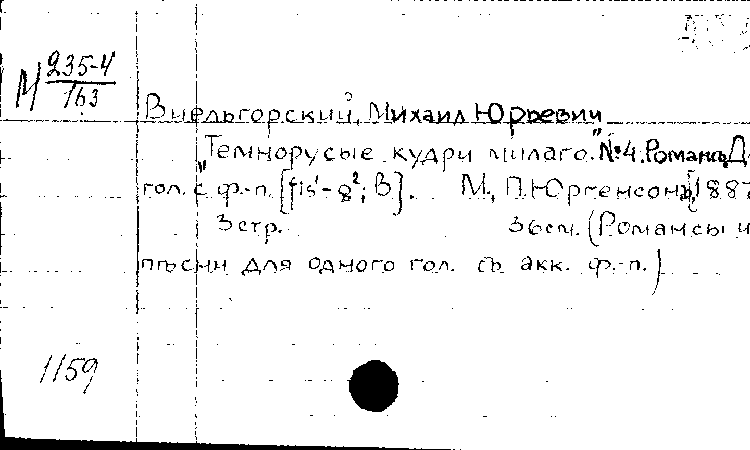 М 235-4
163
Виельгорский, Михаил Юрьевич
"Темнорусые кудри милаго." №4. Романсъ. Д
гол. с ф.-п. [fis¹-g²; В]. М., П. Юргенсонъ, 1887
3 стр. 36 см. (Романсы и
пѣсни для одного гол. съ акк. ф.-п.)
1159